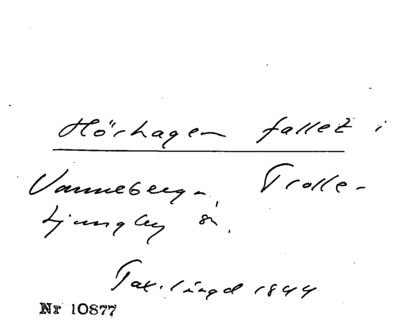 Hörhagen fallet i
Vanneberga, Trolle-
Ljungby sn.
Tax. längd 1844
Nr 10877